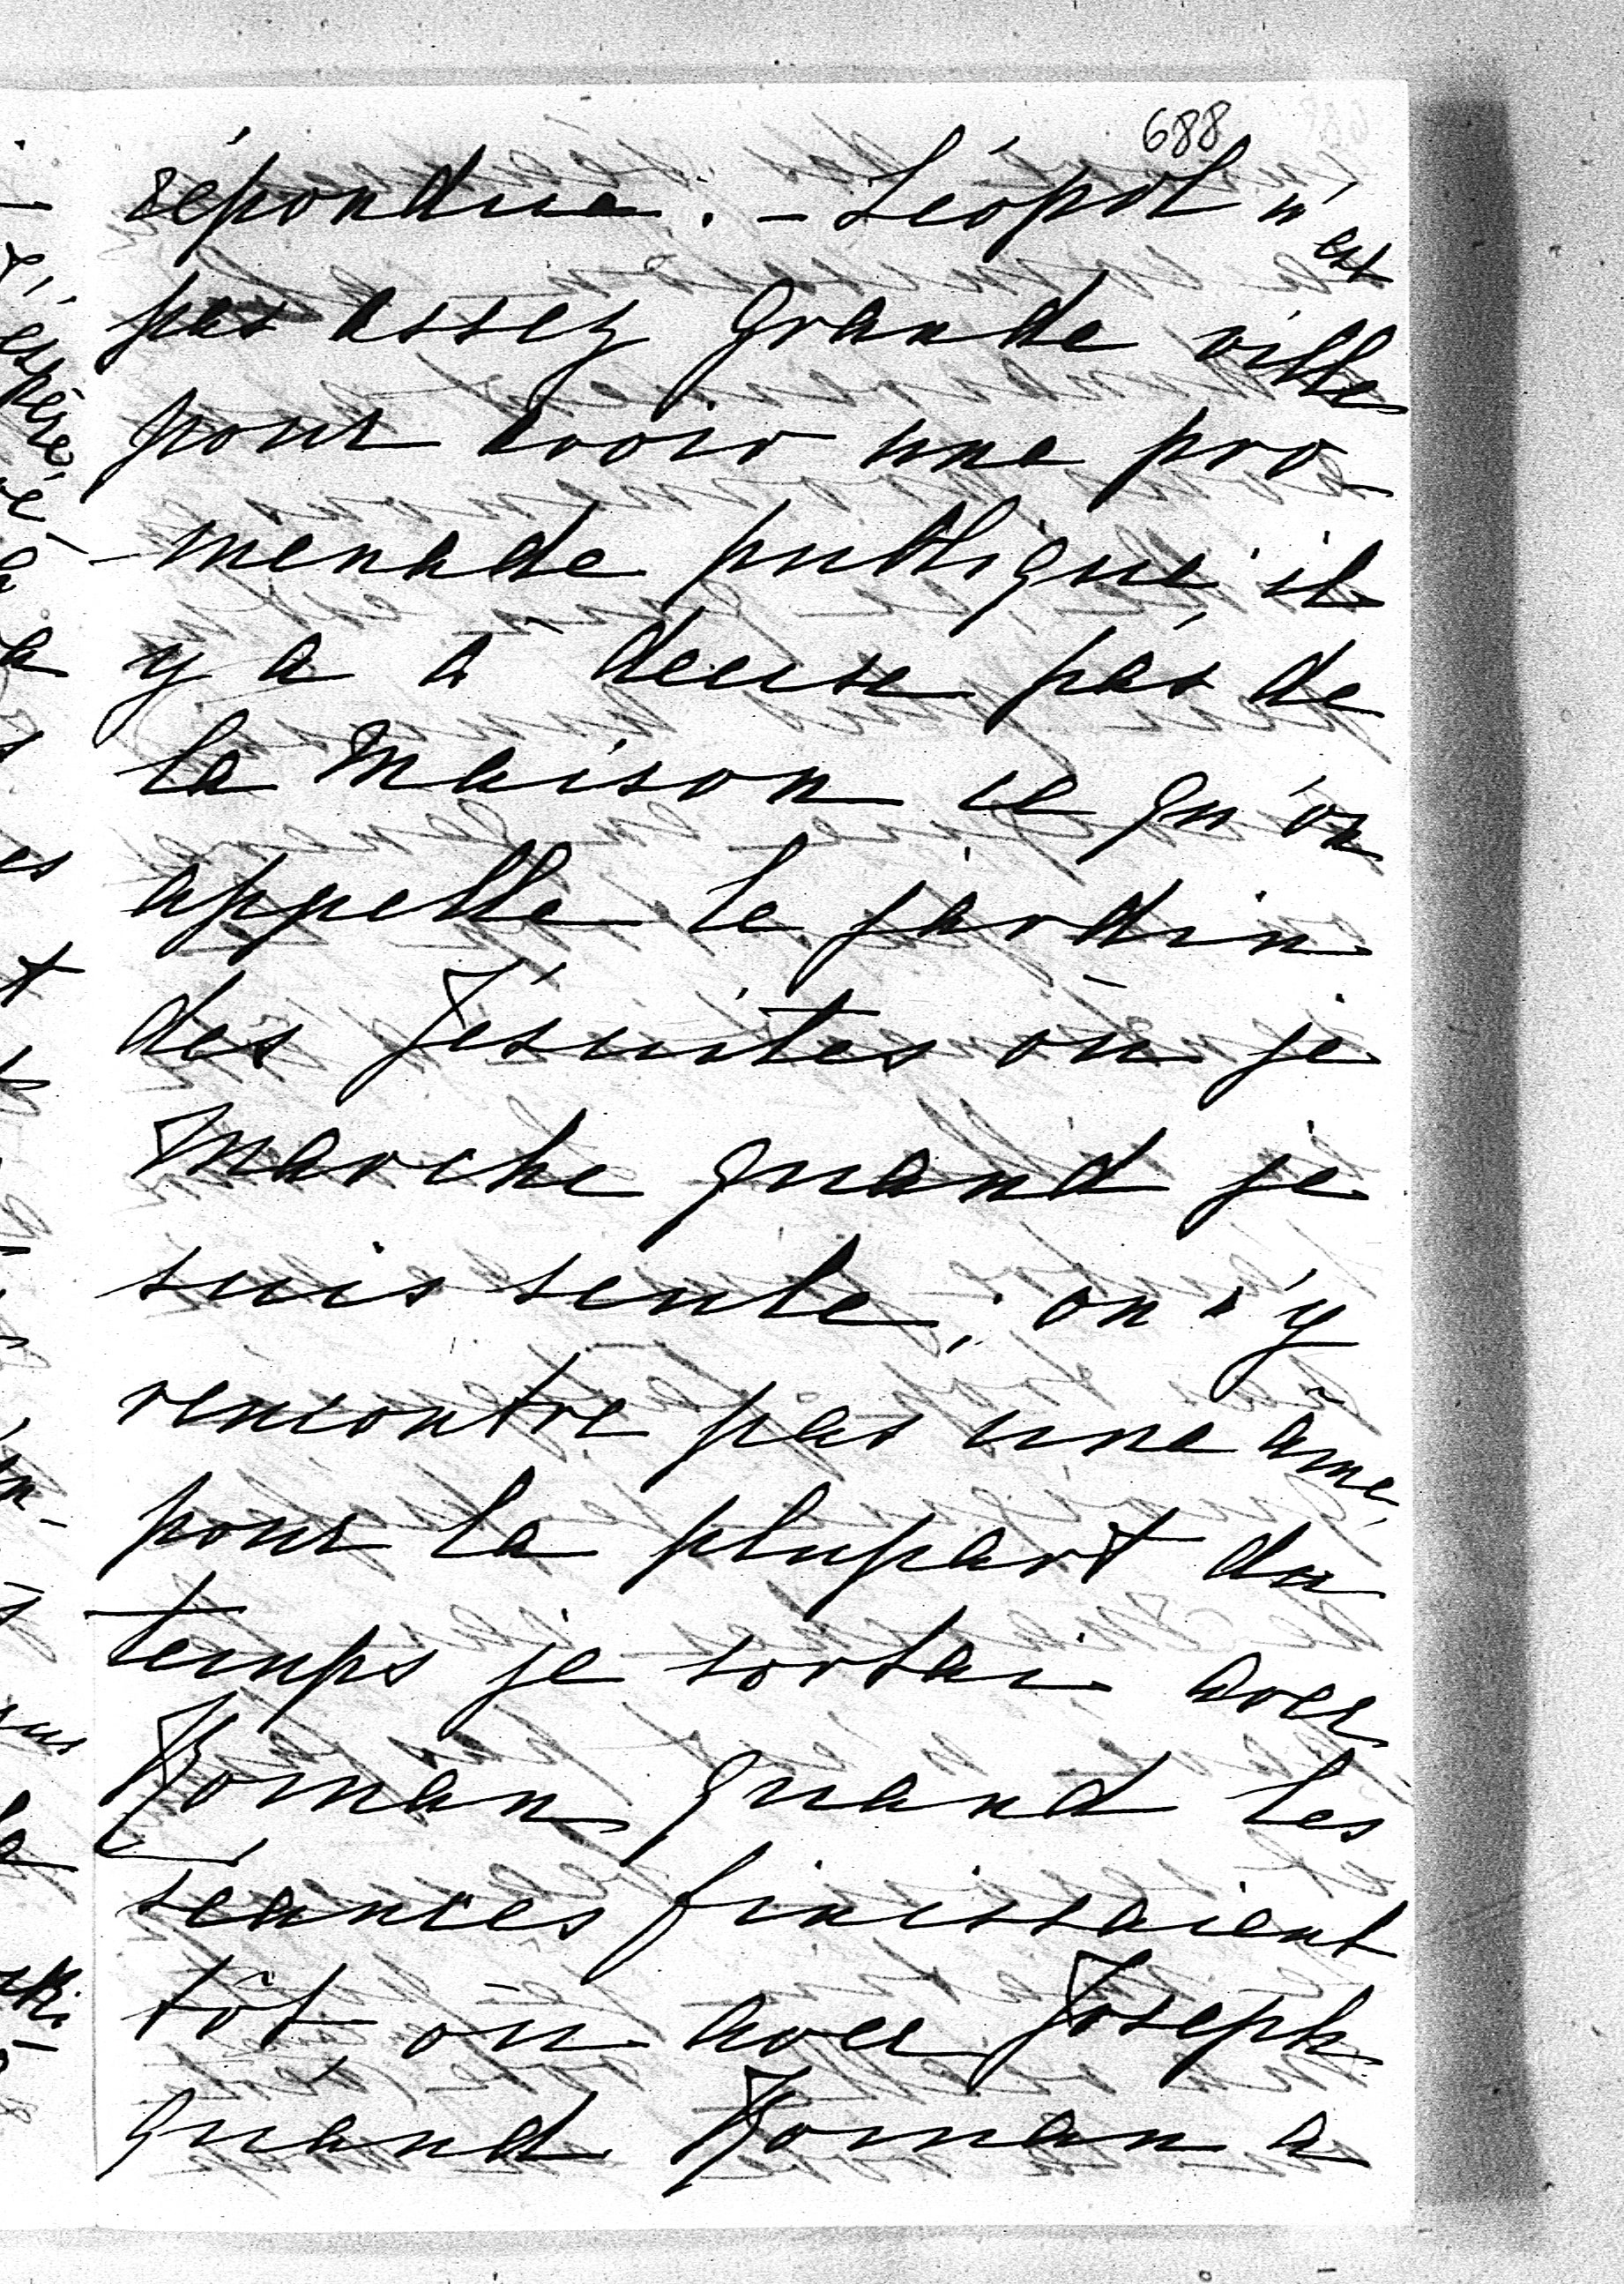 688
répondue. – Léopol n'est
pas assez grande ville
pour avoir une pro
-menade publique, il
y a à deux pas de
la maison ce qu'on
appelle le jardin
des Jésuites où je
marche quand je
suis seule; on n'y
rencontre pas une âme,
pour la plupart du
temps je sortai avec
Roman quand les
séances finissaient
tôt, ou avec Joseph
quand Roman a